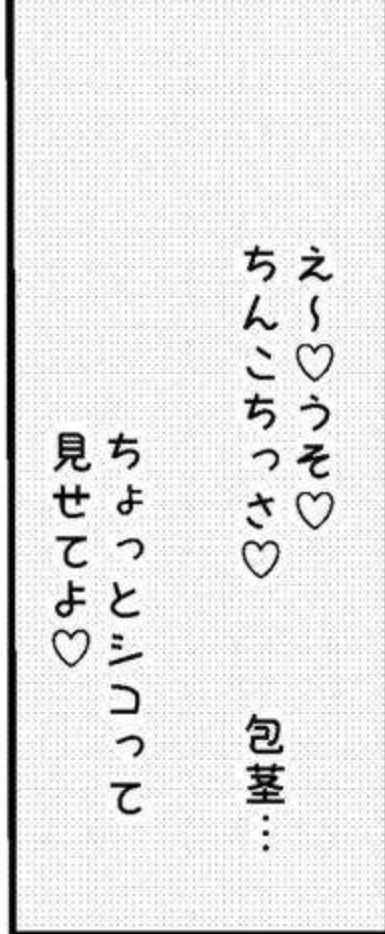 え～♡うそ♡
ちんこちっさ♡
包茎…
ちょっとシコって
見せてよ♡